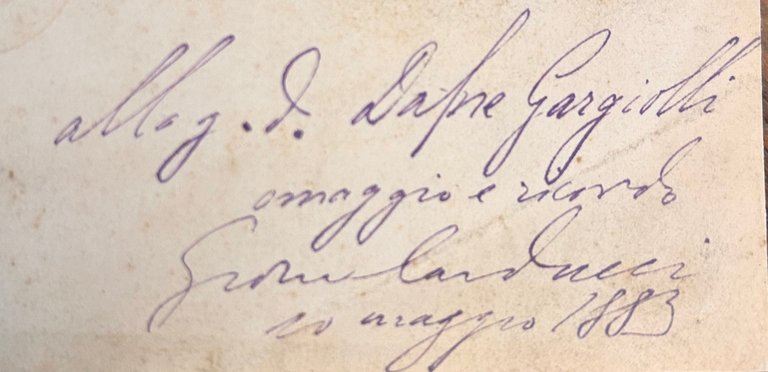 alla g. d. Dafne Gargiolli
omaggio e ricordo
Giosue Carducci
10 maggio 1883